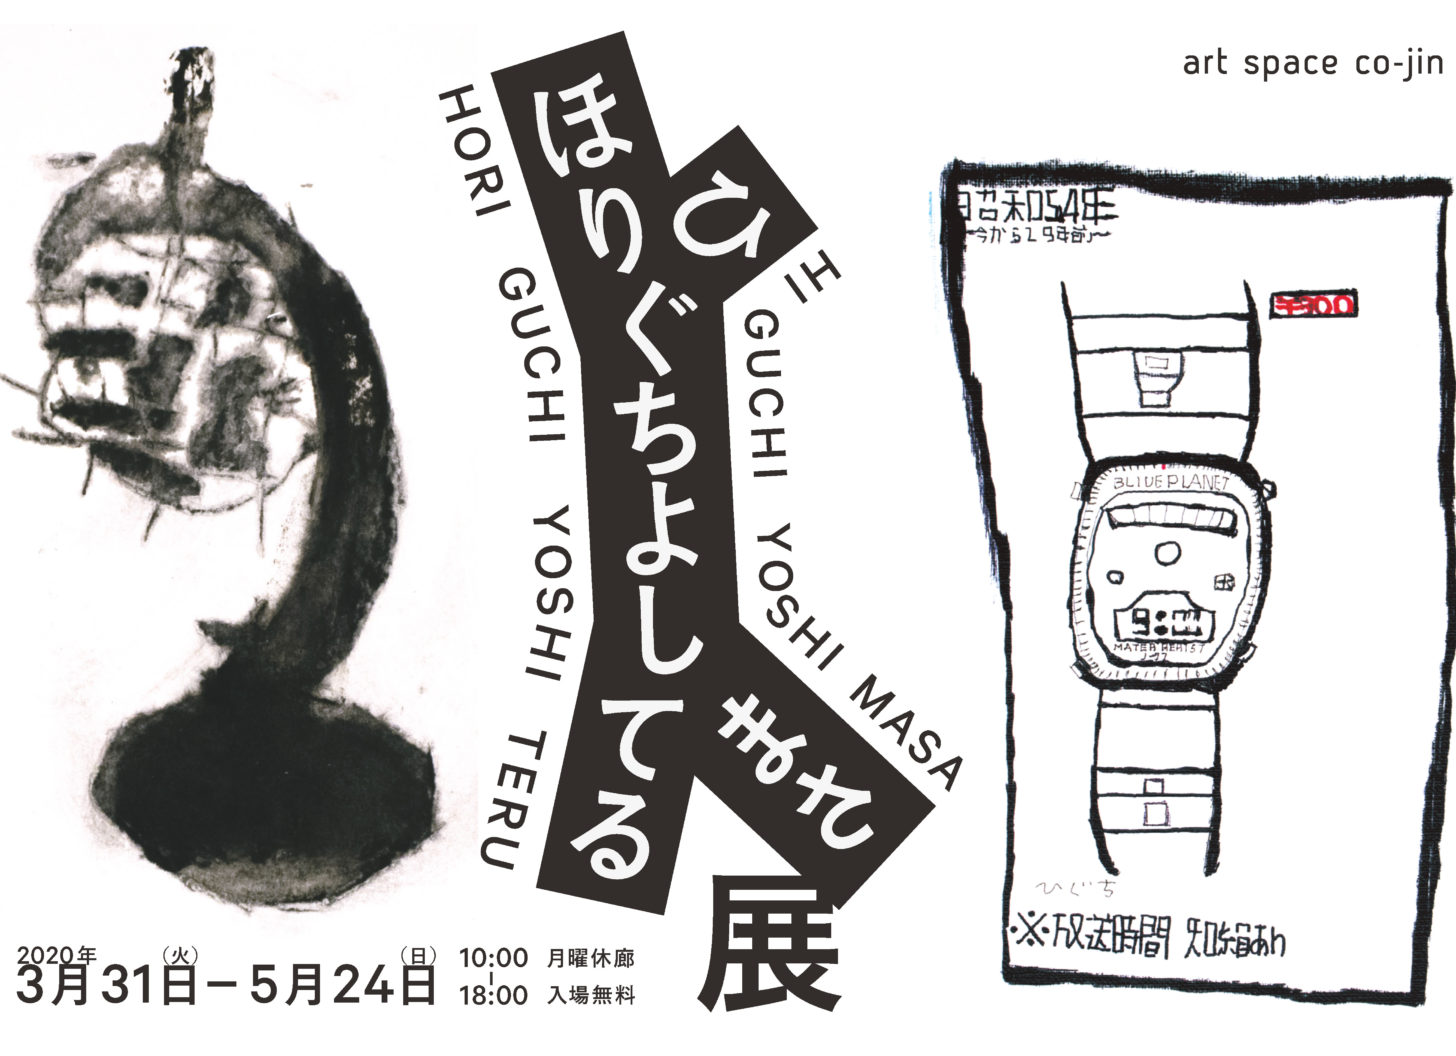 art space co-jin
ほりぐちよしてる
ひ
まさ
展
HORI GUCHI YOSHI TERU
HI GUCHI YOSHI MASA
昭和54年
〜今から29年前〜
¥300
BLIUE PLANET
9:
ひぐち
※放送時間
2020年
3月31日(火)—5月24日(日)
10:00
18:00
月曜休廊
入場無料